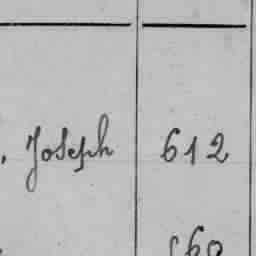 , Joseph 612